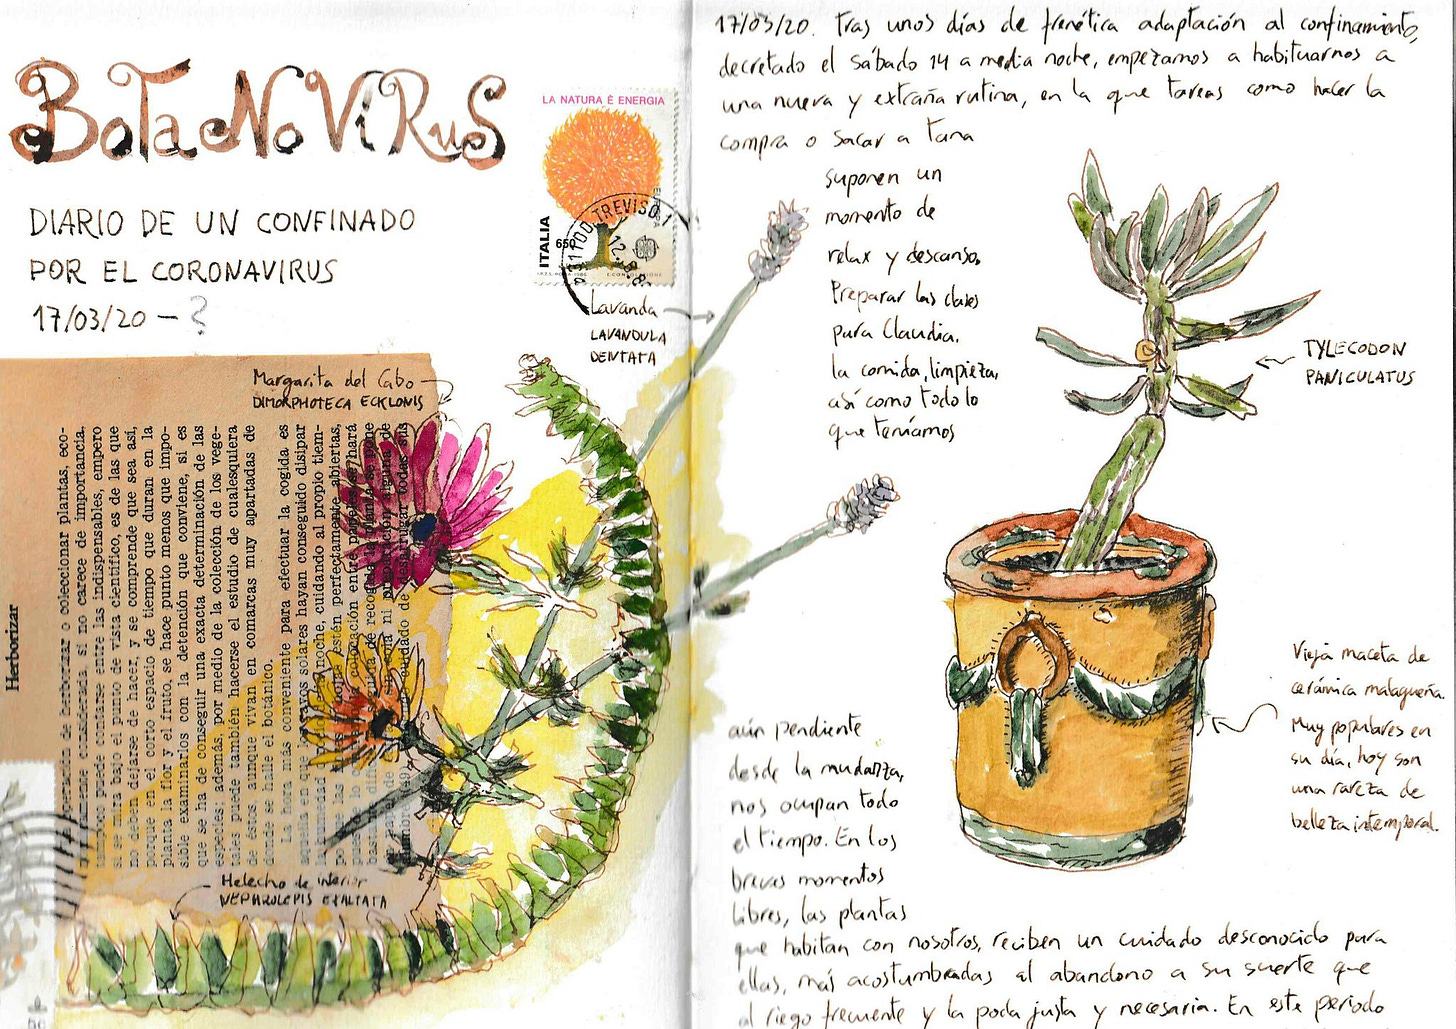 BoTaNoViRuS
DIARIO DE UN CONFINADO
POR EL CORONAVIRUS
17/03/20 – ?
LA NATURA È ENERGIA
ITALIA
650
EUROPA
TREVISO
Lavanda
LAVANDULA
DENTATA
Margarita del Cabo
DIMORPHOTECA ECKLONIS
Herborizar
de herborizar o coleccionar plantas, eco-
considerada, si no carece de importancia,
puede contarse entre las indispensables, empero
si se mira bajo el punto de vista científico, es de las que
no deben dejarse de hacer, y se comprende que sea así,
porque en el corto espacio de tiempo que duran en la
planta la flor y el fruto, se hace punto menos que impo-
sible examinarlos con la detención que conviene, si es
que se ha de conseguir una exacta determinación de las
especies; además, por medio de la colección de los vege-
tales puede también hacerse el estudio de cualesquiera
de éstos, aunque vivan en comarcas muy apartadas de
donde se halle el botánico.
La hora más conveniente para efectuar la cogida es
aquella en que los rayos solares hayan conseguido disipar
la humedad noche, cuidando al propio tiem-
po las estén perfectamente abiertas,
colocación entre hará
de la se pone
ni alguna de
cuidado de todas sus
Helecho de interior
NEPHROLEPIS EXALTATA
17/03/20. Tras unos días de frenética adaptación al confinamiento,
decretado el sábado 14 a media noche, empezamos a habituarnos a
una nueva y extraña rutina, en la que tareas como hacer la
compra o sacar a Tana
suponen un
momento de
relax y descanso.
Preparar las clases
para Claudia,
la comida, limpieza,
así como todo lo
que teníamos
aún pendiente
desde la mudanza,
nos ocupan todo
el tiempo. En los
breves momentos
libres, las plantas
que habitan con nosotros, reciben un cuidado desconocido para
ellas, más acostumbradas al abandono a su suerte que
al riego frecuente y la poda justa y necesaria. En este periodo
TYLECODON
PANICULATUS
Vieja maceta de
cerámica malagueña.
Muy populares en
su día, hoy son
una rareza de
belleza intemporal.